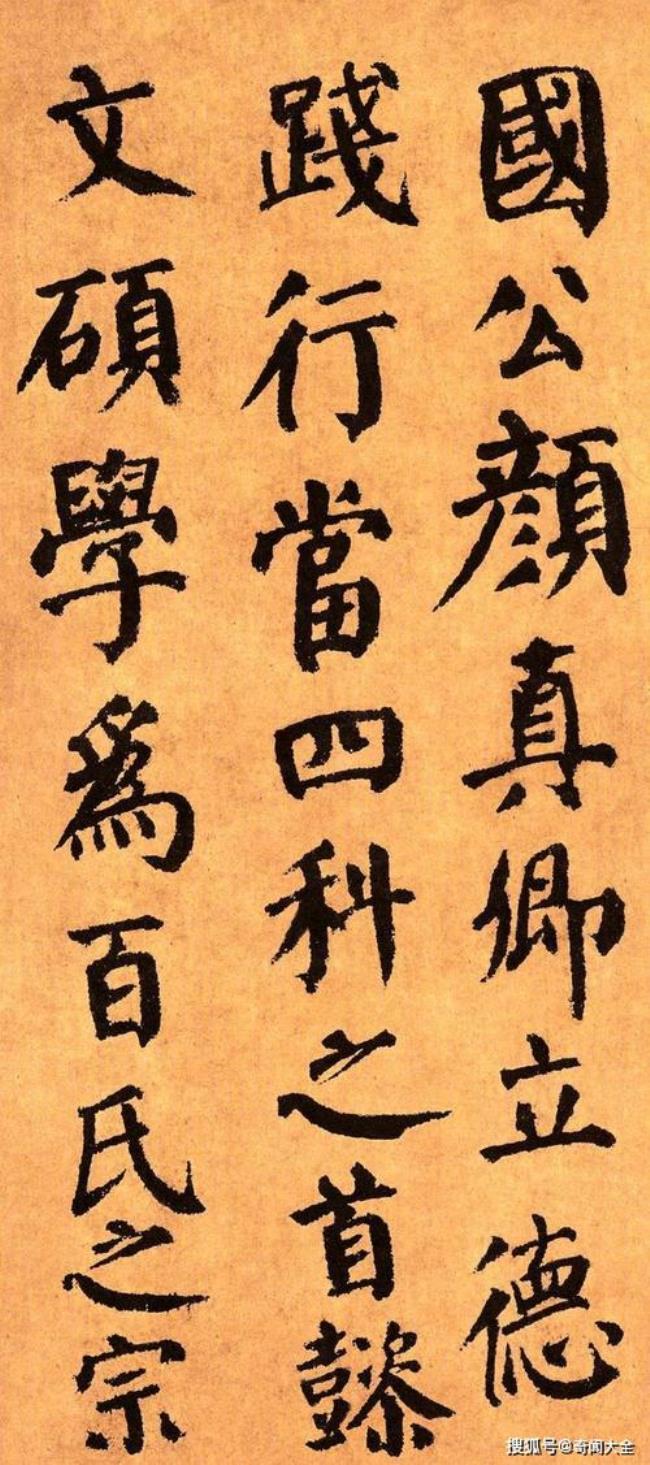 國公顔真卿立德
踐行當四科之首懿
文碩學爲百氏之宗
搜狐号@奇闻大全